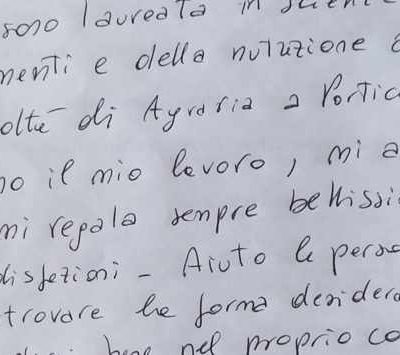 sono laureata in scien
menti e della nutrizione
olta' di Agraria a Portic
no il mio lavoro, mi a
mi regala sempre bellissi
disfazioni - Aiuto le perso
trovare la forma desidera
bene nel proprio co